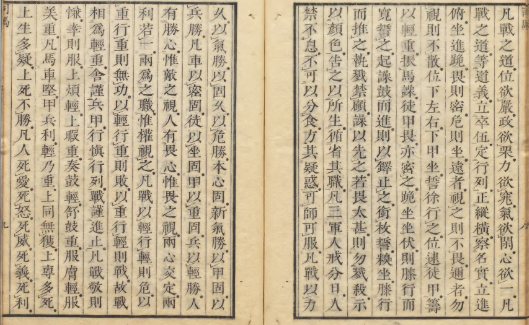 凡戰之道位欲嚴政欲栗力欲窕氣欲閑心欲一凡
戰之道等道義立卒伍定行列正縱橫察名實立進
俯坐進跪畏則密危則坐遠者視之則不畏邇者勿
視則不散位下左右下甲坐誓徐行之位逮徒甲籌
以輕重振馬譟徒甲畏亦密之跪坐坐伏則膝行而
寬誓之起譟鼓而進則以鐸止之銜枚誓糗坐膝行
而推之執戮禁顧譟以先之若畏太甚則勿戮殺示
以顏色告之以所生循省其職凡三軍人戒分日人
禁不息不可以分食方其疑惑可師可服凡戰以力
久以氣勝以固久以危勝本心固新氣勝以甲固以
兵勝凡車以密固徒以坐固甲以重固兵以輕勝人
有勝心惟敵之視人有畏心惟畏之視兩心交定兩
利若一兩為之職惟權視之凡戰以輕行輕則危以
重行重則無功以輕行重則敗以重行輕則戰故戰
相為輕重舍謹兵甲行慎行列戰謹進止凡戰敬則
慊率則服上煩輕上暇重奏鼓輕舒鼓重服膚輕服
美重凡馬車堅甲兵利輕乃重上同無獲上專多死
上生多疑上死不勝凡人死愛死怒死威死義死利